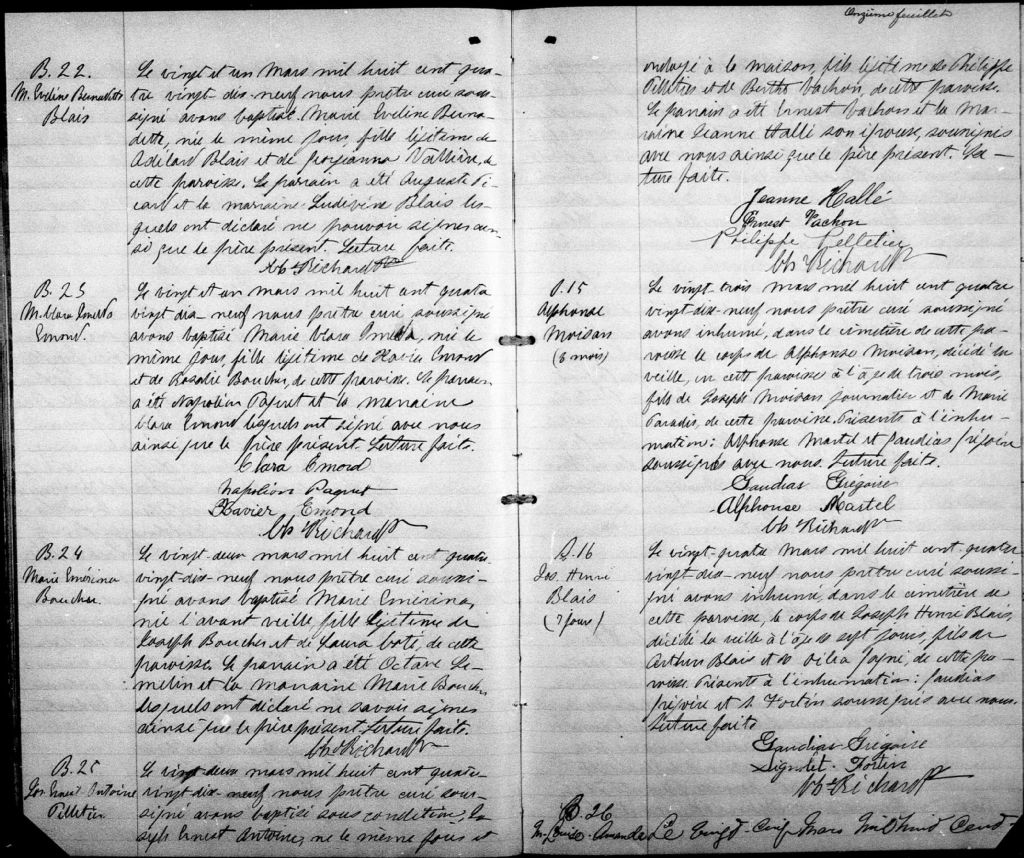 B.22.
M. Eveline Bernadette
Blais
Le vingt et un Mars mil huit cent qua-
tre vingt-dix-neuf nous prêtre curé sous-
signé avons baptisé Marie Eveline Berna-
dette, née le même jour, fille légitime de
Adélard Blais et de Georgeanna Vallière, de
cette paroisse. Le parrain a été Auguste Pi-
card et la marraine Ludevine Blais les-
quels ont déclaré ne pouvoir signer ain-
si que le père présent. Lecture faite.
Chs Richard Ptre
B. 23
M. Clara Emerda
Emond.
Le vingt et un mars mil huit cent quatre
vingt dix-neuf nous prêtre curé soussigné
avons baptisé Marie Clara née le
même jour fille légitime de Xavier Emond
et de Rosalie Boucher, de cette paroisse. Le parrain
a été Napoléon Paquet et la marraine
Clara Emond lesquels ont signé avec nous
ainsi que le père présent. Lecture faite.
Clara Emond
Napoléon Paquet
Xavier Emond
Chs Richard Ptre
B. 24
Marie Emérina
Boucher.
Le vingt-deux mars mil huit cent quatre
vingt-dix-neuf nous prêtre curé soussi-
gné avons baptisé Marie Emérina,
née l'avant veille fille légitime de
Joseph Boucher et de Laura Coté, de cette
paroisse. Le parrain a été Octave Le-
melin et la marraine Marie Boucher
lesquels ont déclaré ne savoir signer
ainsi que le père présent. Lecture faite.
Chs Richard Ptre
B. 25
Jos. Ernest Antoine
Pelletier
Le vingt deux mars mil huit cent quatre
vingt-dix-neuf nous prêtre curé sous-
signé avons baptisé sous condition, Jo-
seph Ernest Antoine, né le même jour et
Onzième feuillet
ondoyé à la maison, fils légitime de Philippe
Pelletier et de Bertha Vachon, de cette paroisse.
Le parrain a été Ernest Vachon et la mar-
raine Jeanne Hallé son épouse, soussignés
avec nous ainsi que le père présent. Lec-
ture faite.
Jeanne Hallé
Ernest Vachon
Philippe Pelletier
Chs Richard Ptre
S. 15
Alphonse
Moisan
(3 mois)
Le vingt trois mars mil huit cent quatre
vingt dix-neuf nous prêtre curé soussigné
avons inhumé, dans le cimetière de cette pa-
roisse le corps de Alphonse Moisan, décédé la
veille, en cette paroisse à l'âge de trois mois,
fils de Joseph Moisan journalier et de Marie
Paradis, de cette paroisse. Présents à l'inhu-
mation: Alphonse Martel et Gaudias Grégoire
soussignés avec nous. Lecture faite.
Gaudias Grégoire
Alphonse Martel
Chs Richard Ptre
S. 16
Jos. Henri
Blais
(7 jours)
Le vingt-quatre Mars mil huit cent quatre
vingt-dix-neuf nous prêtre curé soussi-
gné avons inhumé, dans le cimetière de
cette paroisse, le corps de Joseph Henri Blais,
décédé la veille à l'âge de sept jours, fils de
Arthur Blais et de Délia Gagné, de cette pa-
roisse. Présents à l'inhumation: Gaudias
Grégoire et S. Fortin soussignés avec nous.
Lecture faite.
Gaudias Grégoire
Fortin
Chs Richard Ptre
B. 26
M. Louise Amanda
Le vingt-cinq Mars mil huit cent